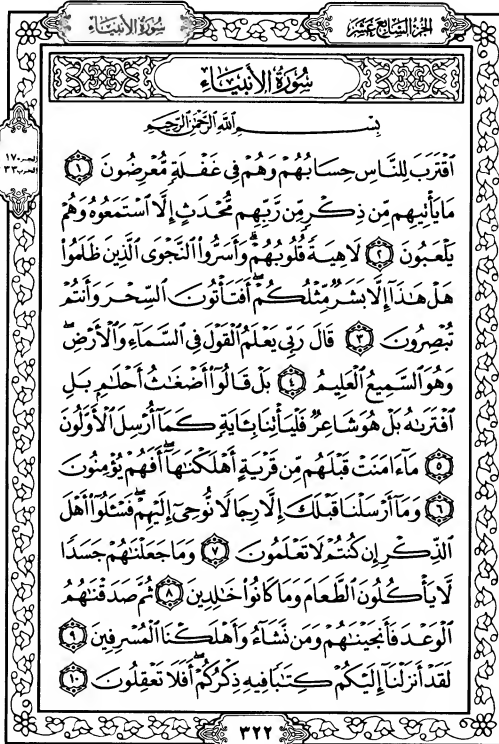 الجزء السابع عشر
سورة الأنبياء
سُورَةُ الأَنبِيَاء
بِسْمِ اللَّهِ الرَّحْمَٰنِ الرَّحِيمِ
ٱقْتَرَبَ لِلنَّاسِ حِسَابُهُمْ وَهُمْ فِى غَفْلَةٍ مُّعْرِضُونَ ١
مَا يَأْتِيهِم مِّن ذِكْرٍ مِّن رَّبِّهِم مُّحْدَثٍ إِلَّا ٱسْتَمَعُوهُ وَهُمْ
يَلْعَبُونَ ٢ لَاهِيَةً قُلُوبُهُمْ ۗ وَأَسَرُّوا۟ ٱلنَّجْوَى ٱلَّذِينَ ظَلَمُوا۟
هَلْ هَـٰذَآ إِلَّا بَشَرٌ مِّثْلُكُمْ ۖ أَفَتَأْتُونَ ٱلسِّحْرَ وَأَنتُمْ
تُبْصِرُونَ ٣ قَالَ رَبِّى يَعْلَمُ ٱلْقَوْلَ فِى ٱلسَّمَآءِ وَٱلْأَرْضِ ۖ
وَهُوَ ٱلسَّمِيعُ ٱلْعَلِيمُ ٤ بَلْ قَالُوٓا۟ أَضْغَـٰثُ أَحْلَـٰمٍ بَلِ
ٱفْتَرَىٰهُ بَلْ هُوَ شَاعِرٌ فَلْيَأْتِنَا بِـَٔايَةٍ كَمَآ أُرْسِلَ ٱلْأَوَّلُونَ
٥ مَآ ءَامَنَتْ قَبْلَهُم مِّن قَرْيَةٍ أَهْلَكْنَـٰهَآ ۖ أَفَهُمْ يُؤْمِنُونَ
٦ وَمَآ أَرْسَلْنَا قَبْلَكَ إِلَّا رِجَالًا نُّوحِىٓ إِلَيْهِمْ ۖ فَسْـَٔلُوٓا۟ أَهْلَ
ٱلذِّكْرِ إِن كُنتُمْ لَا تَعْلَمُونَ ٧ وَمَا جَعَلْنَـٰهُمْ جَسَدًا
لَّا يَأْكُلُونَ ٱلطَّعَامَ وَمَا كَانُوا۟ خَـٰلِدِينَ ٨ ثُمَّ صَدَقْنَـٰهُمُ
ٱلْوَعْدَ فَأَنجَيْنَـٰهُمْ وَمَن نَّشَآءُ وَأَهْلَكْنَا ٱلْمُسْرِفِينَ ٩
لَقَدْ أَنزَلْنَآ إِلَيْكُمْ كِتَـٰبًا فِيهِ ذِكْرُكُمْ ۖ أَفَلَا تَعْقِلُونَ ١٠
٣٢٢